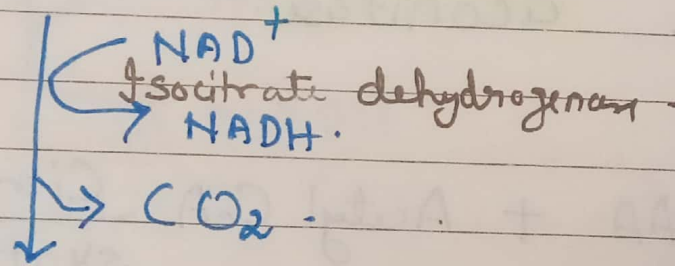 NAD+
Isocitrate dehydrogenase
NADH.
CO2.